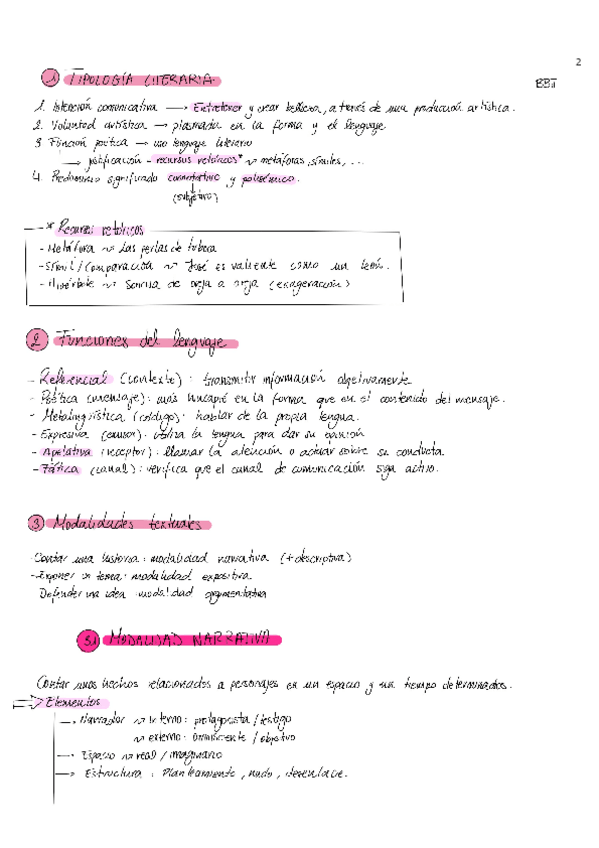 2
1 TIPOLOGÍA LITERARIA.
1. Intención comunicativa → Entretener y crear belleza, a través de una producción artística.
2. Voluntad artística → plasmada en la forma y el lenguaje
3 Función poética → uso lenguaje literario
→ justificación - recursos retóricos* ~ metáforas, símiles, ...
4. Predominio significado connotativo y polisémico.
(subjetivo)
* Recursos retóricos
- Metáfora ~ Las perlas de tu boca
- Símil / Comparación ~ José es valiente como un león.
- Hipérbole ~ Sonrisa de oreja a oreja (exageración)
2 Funciones del lenguaje
- Referencial (contexto): transmitir información objetivamente
- Poética (mensaje): más hincapié en la forma que en el contenido del mensaje.
- Metalingüística (código): hablar de la propia lengua.
- Expresiva (emisor): utiliza la lengua para dar su opinión
- Apelativa (receptor): llamar la atención o actuar sobre su conducta.
- Fática (canal): verifica que el canal de comunicación siga activo.
3 Modalidades textuales
- Contar una historia: modalidad narrativa (+ descriptiva)
- Exponer tema: modalidad expositiva
Defender una idea modalidad argumentativa
3.1 MODALIDAD NARRATIVA
Contar unos hechos relacionados a personajes en un espacio y un tiempo determinados.
⇒ Elementos
→ Narrador ~ interno: protagonista / testigo
~ externo: omnisciente / objetivo
→ Espacio ~ real / imaginario
→ Estructura: Planteamiento, nudo, desenlace.